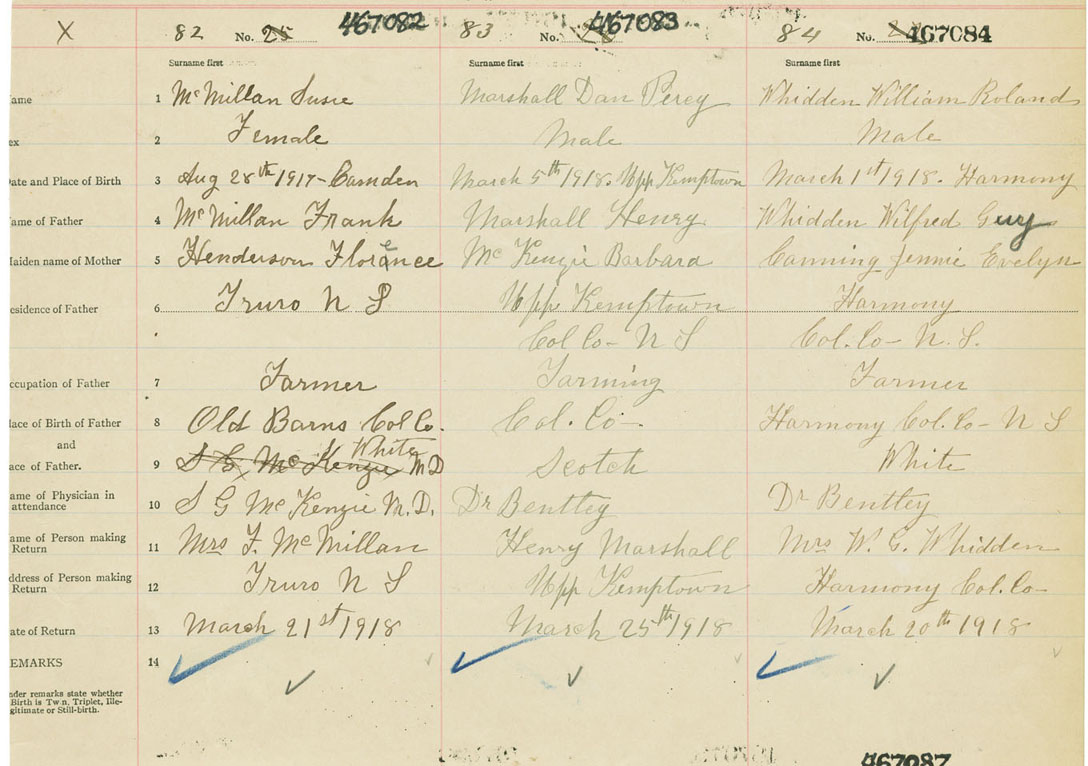 X 82 No. 25 467082 83 No. 467083 84 No. 467084
Surname first Surname first Surname first
ame 1 McMillan Susie Marshall Dan Percy Whidden William Roland
ex 2 Female Male Male
ate and Place of Birth 3 Aug 28th 1917 - Camden March 5th 1918. Upp Kemptown March 1st 1918. Harmony
ame of Father 4 McMillan Frank Marshall Henry Whidden Wilfred Guy
aiden name of Mother 5 Henderson Florence McKenzie Barbara Canning Jennie Evelyn
esidence of Father 6 Truro N S Upp Kemptown Harmony
Col Co - N S Col. Co - N. S.
ccupation of Father 7 Farmer Farming Farmer
lace of Birth of Father 8 Old Barns Col Co. Col. Co - Harmony Col. Co - N S
and
White
ace of Father. 9 S G McKenzie M D Scotch White
ame of Physician in
attendance 10 S G McKenzie M. D. Dr Benttey Dr Benttey
ame of Person making
Return 11 Mrs F. McMillan Henry Marshall Mrs W. G. Whidden
ddress of Person making
Return 12 Truro N S Upp Kemptown Harmony Col. Co -
ate of Return 13 March 21st 1918 March 25th 1918 March 20th 1918
EMARKS 14
nder remarks state whether
Birth is Twin, Triplet, Ille-
gitimate or Still-birth.
467087